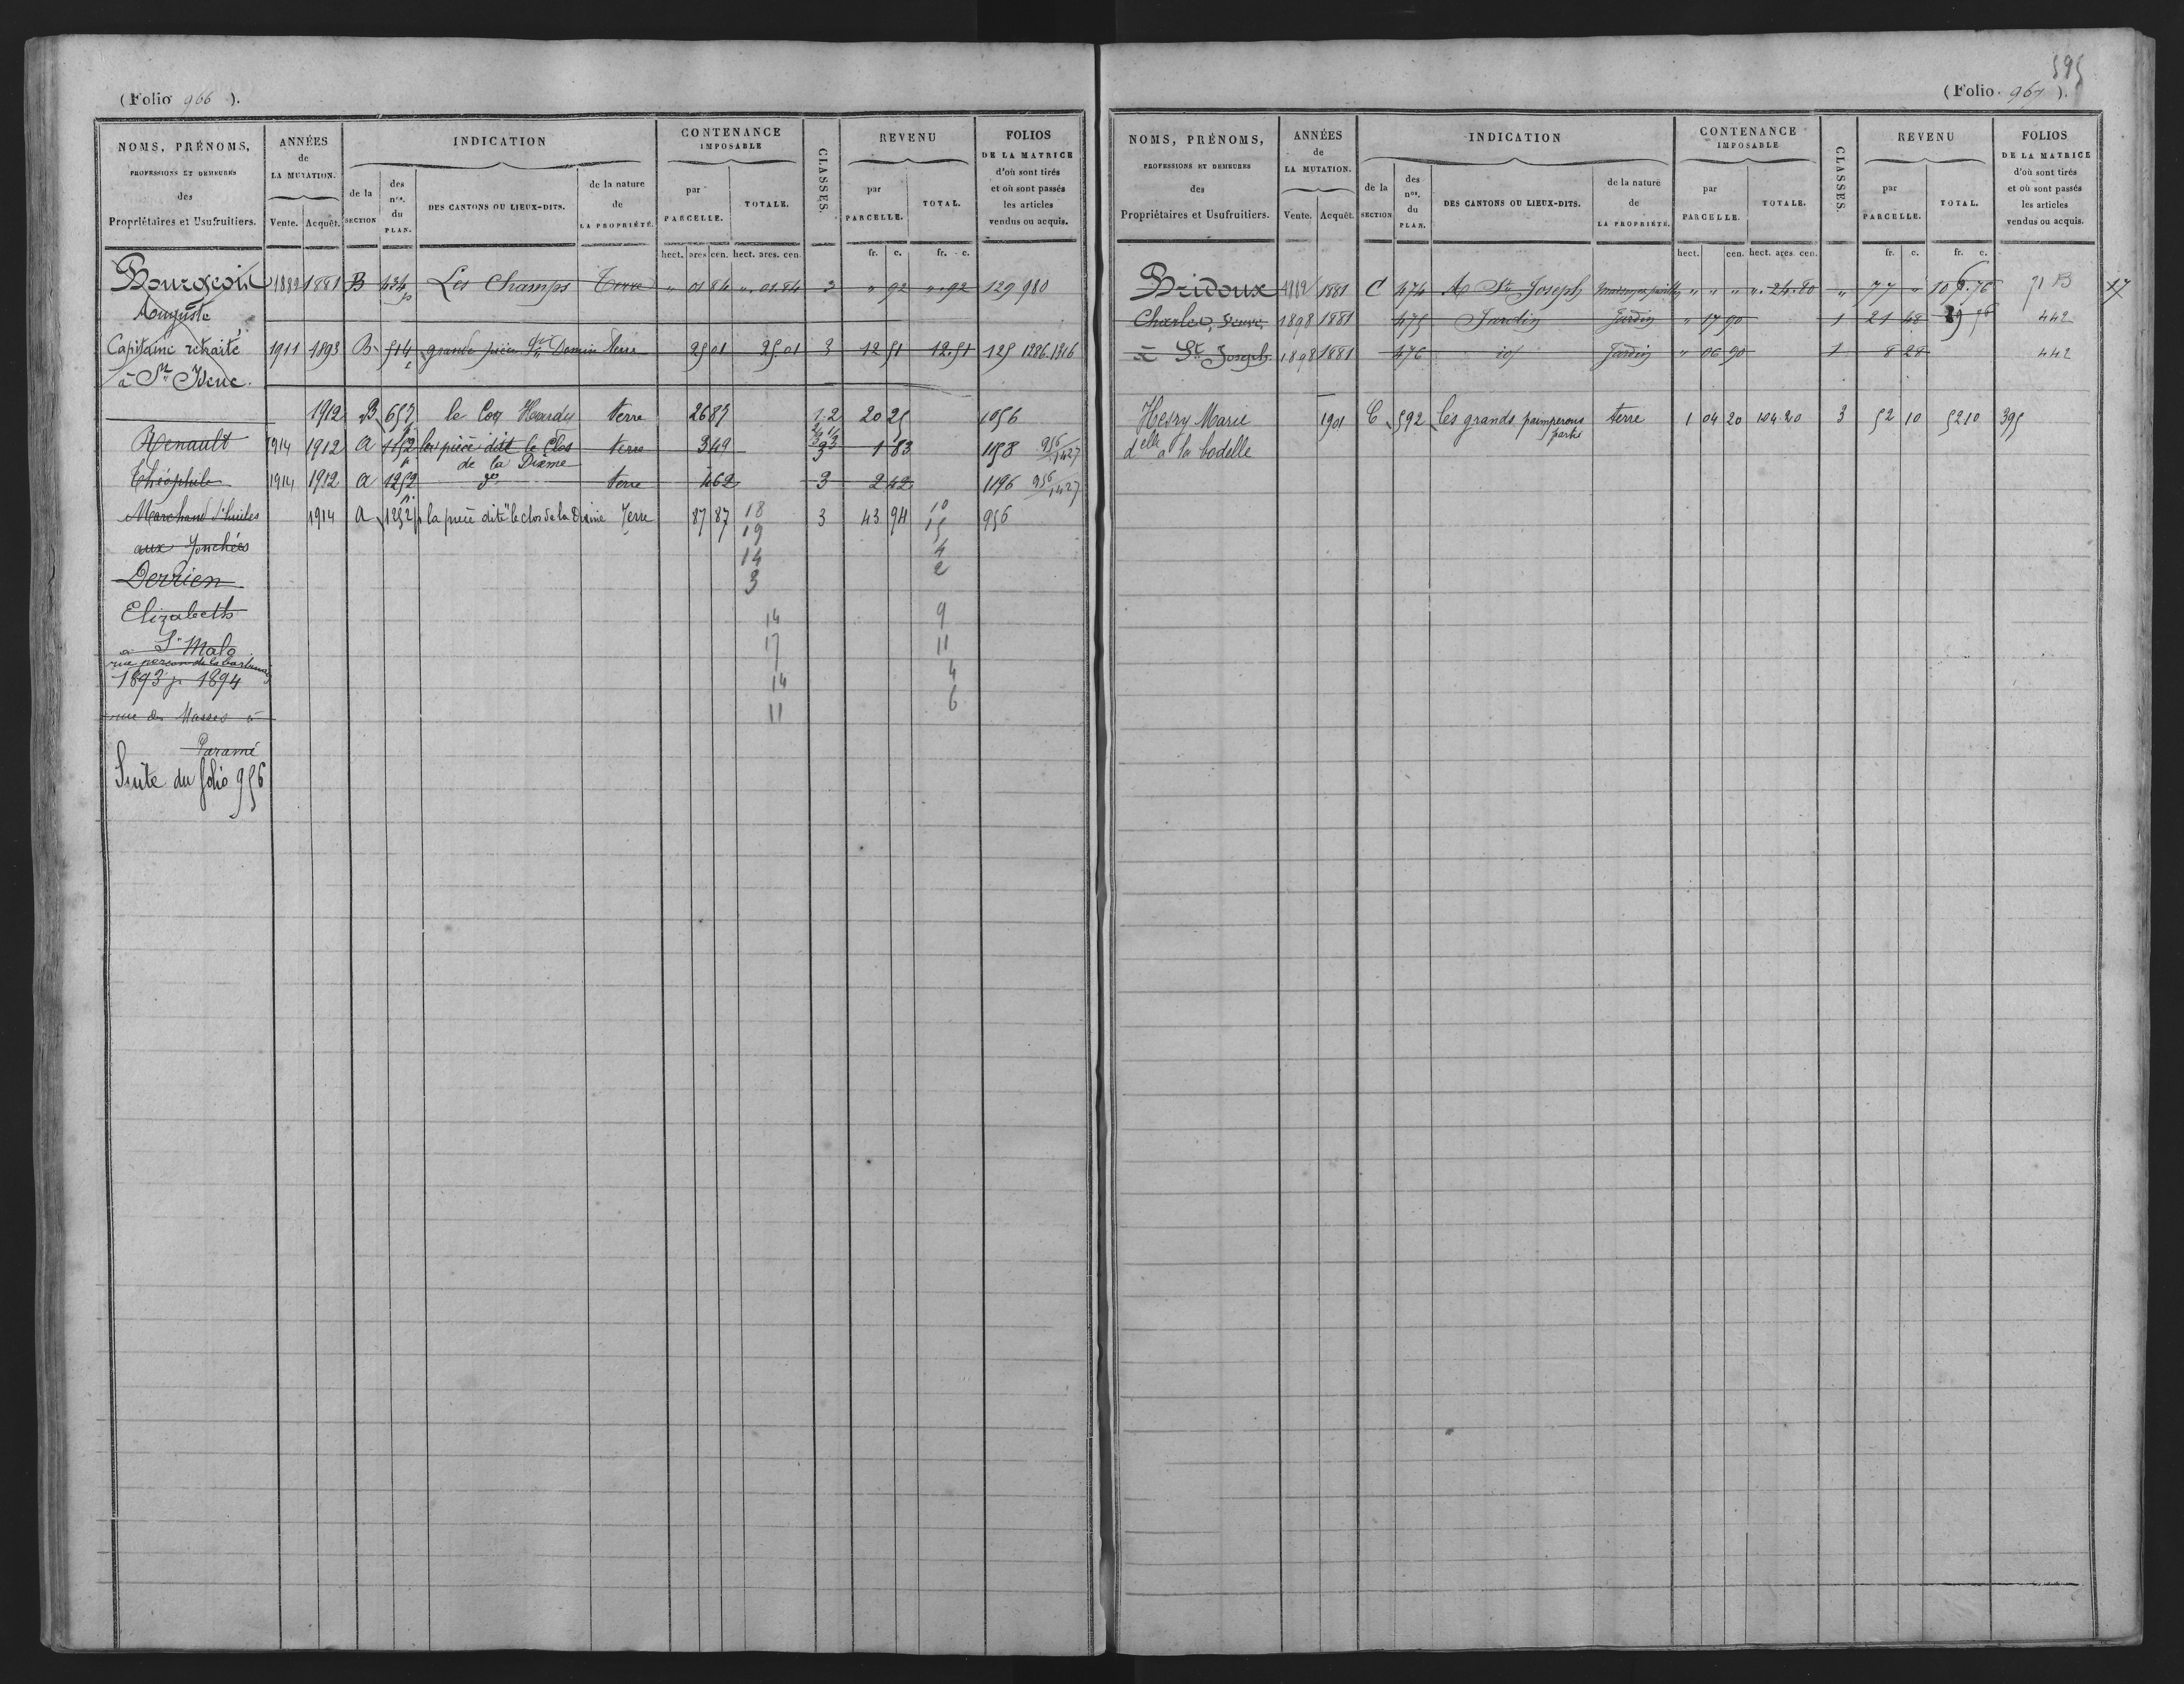 (Folio 966).
NOMS, PRÉNOMS,
PROFESSIONS ET DEMEURES
des
Propriétaires et Usufruitiers.
ANNÉES
de
LA MUTATION.
Vente. Acquêt.
INDICATION
de la
SECTION
des
nos.
du
PLAN.
DES CANTONS OU LIEUX-DITS.
de la nature
de
LA PROPRIÉTÉ.
CONTENANCE
IMPOSABLE
par
PARCELLE. TOTALE.
CLASSES.
REVENU
par
PARCELLE. TOTAL.
FOLIOS
DE LA MATRICE
d'où sont tirés
et où sont passés
les articles
vendus ou acquis.
hect. ares cen. hect. ares. cen. fr. c. fr. c.
Bourgeois 1882 1881 B 434 p Les Champs Terre " 01 84 " 01.84 3 " 92 " 92 129 980
Auguste
Capitaine retraité 1911 1893 B 514 grande pièce Terre 25 01 25.01 3 12 51 12.51 125 1286.1316
à St Ideuc.
1912 B 657 p le Coq Hardy terre 26 83 1.2 20 25 1056
Renault 1914 1912 a 1152 p la pièce dite le Clos terre 3 49 3 1 83 1158 956/1427
de la Dixme
Théophile 1914 1912 a 1252 p do terre 4 62 3 2 42 1196 956/1427
Marchand d'huiles 1914 a 1252 p la pièce dite "le clos de la Dixme Terre 87 87 18 3 43 94 10 956
19 15
aux Jonchées
14 4
Derrien
3 2
Elizabeth
14 9
à St Malo
17 11
rue
1893 p 1894
14 4
rue des Masses à
11 6
Paramé
Suite du folio 956
595
(Folio 967).
NOMS, PRÉNOMS,
PROFESSIONS ET DEMEURES
des
Propriétaires et Usufruitiers.
ANNÉES
de
LA MUTATION.
Vente. Acquêt.
INDICATION
de la
SECTION
des
nos.
du
PLAN.
DES CANTONS OU LIEUX-DITS.
de la nature
de
LA PROPRIÉTÉ.
CONTENANCE
IMPOSABLE
par
PARCELLE. TOTALE.
CLASSES.
REVENU
par
PARCELLE. TOTAL.
FOLIOS
DE LA MATRICE
d'où sont tirés
et où sont passés
les articles
vendus ou acquis.
hect. cen. hect. ares. cen. fr. c. fr. c.
Bridoux 1882 1881 C 474 A St Joseph " " " " 24.80 " 77 " 106.76 71 B
Charles, Veuve, 1898 1881 475 Jardin Jardin " 17 90 1 21 48 29 76 442
à St Joseph 1898 1881 476 id Jardin " 06 90 1 8 28 442
Hesry Marie 1901 C 592 les grands pamperous terre 1 04 20 104 20 3 52 10 52 10 395
partie
delle à la bodelle